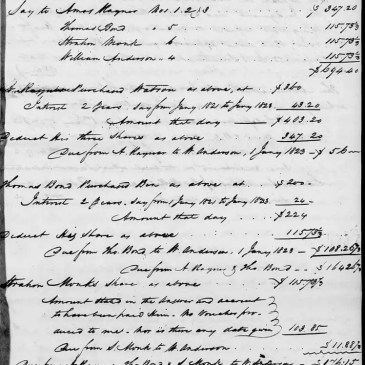 Say to Amos Raynes Nos. 1. 2 & 3 $347.20
Thomas Bond " 5 115.73⅓
Strahon Monk " 6 115.73⅓
William Anderson - 4 115.73⅓
$694.40
Purchased Watson as above, at $360
Interest 2 Years. Say from Jany. 1821 to Jany 1823 43.20
Amount that day $403.20
Deduct his three Shares as above 347.20
Due from A. Raynes to W. Anderson, 1 Jany 1823 - $56—
Thomas Bond Purchased Ben as above at $200-
Interest 2 Years. Say from 1 Jany 1821 to Jany 1823. 24-
Amount that day $224
Deduct His Share as above 115.73⅓
Due from Tho. Bond to W. Anderson, 1 Jany 1823 - $108.26⅔
Due from A. Raynes & Tho. Bond - $164.26⅔
Strahon Monk's Share as above $115.73⅓
Amount stated in the Answer and account
to have been paid him. No Voucher pro-
duced to me. Nor is there any date given 103.85
Due from S. Monk to W. Anderson $11.88⅓
$176.15